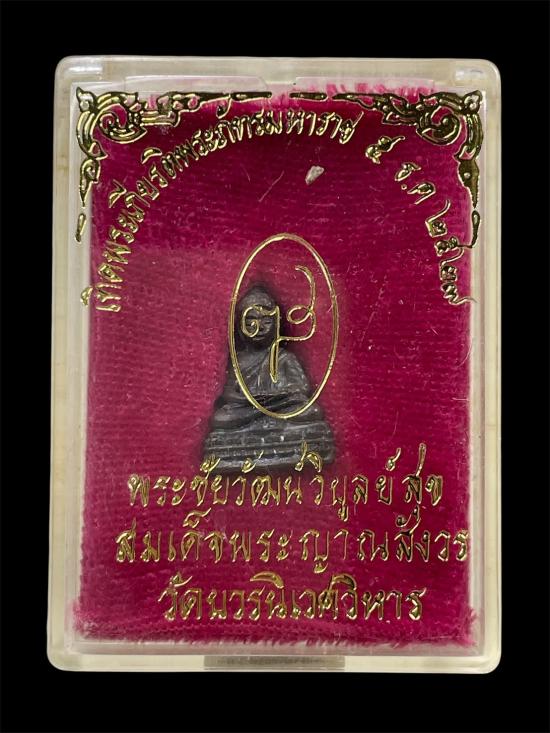 เทิดพระเกียรติพระภัทรมหาราช ๕ ธ.ค ๒๕๒๗
พระชัยวัฒน์วิบูลย์สุข
สมเด็จพระญาณสังวร
วัดบวรนิเวศวิหาร